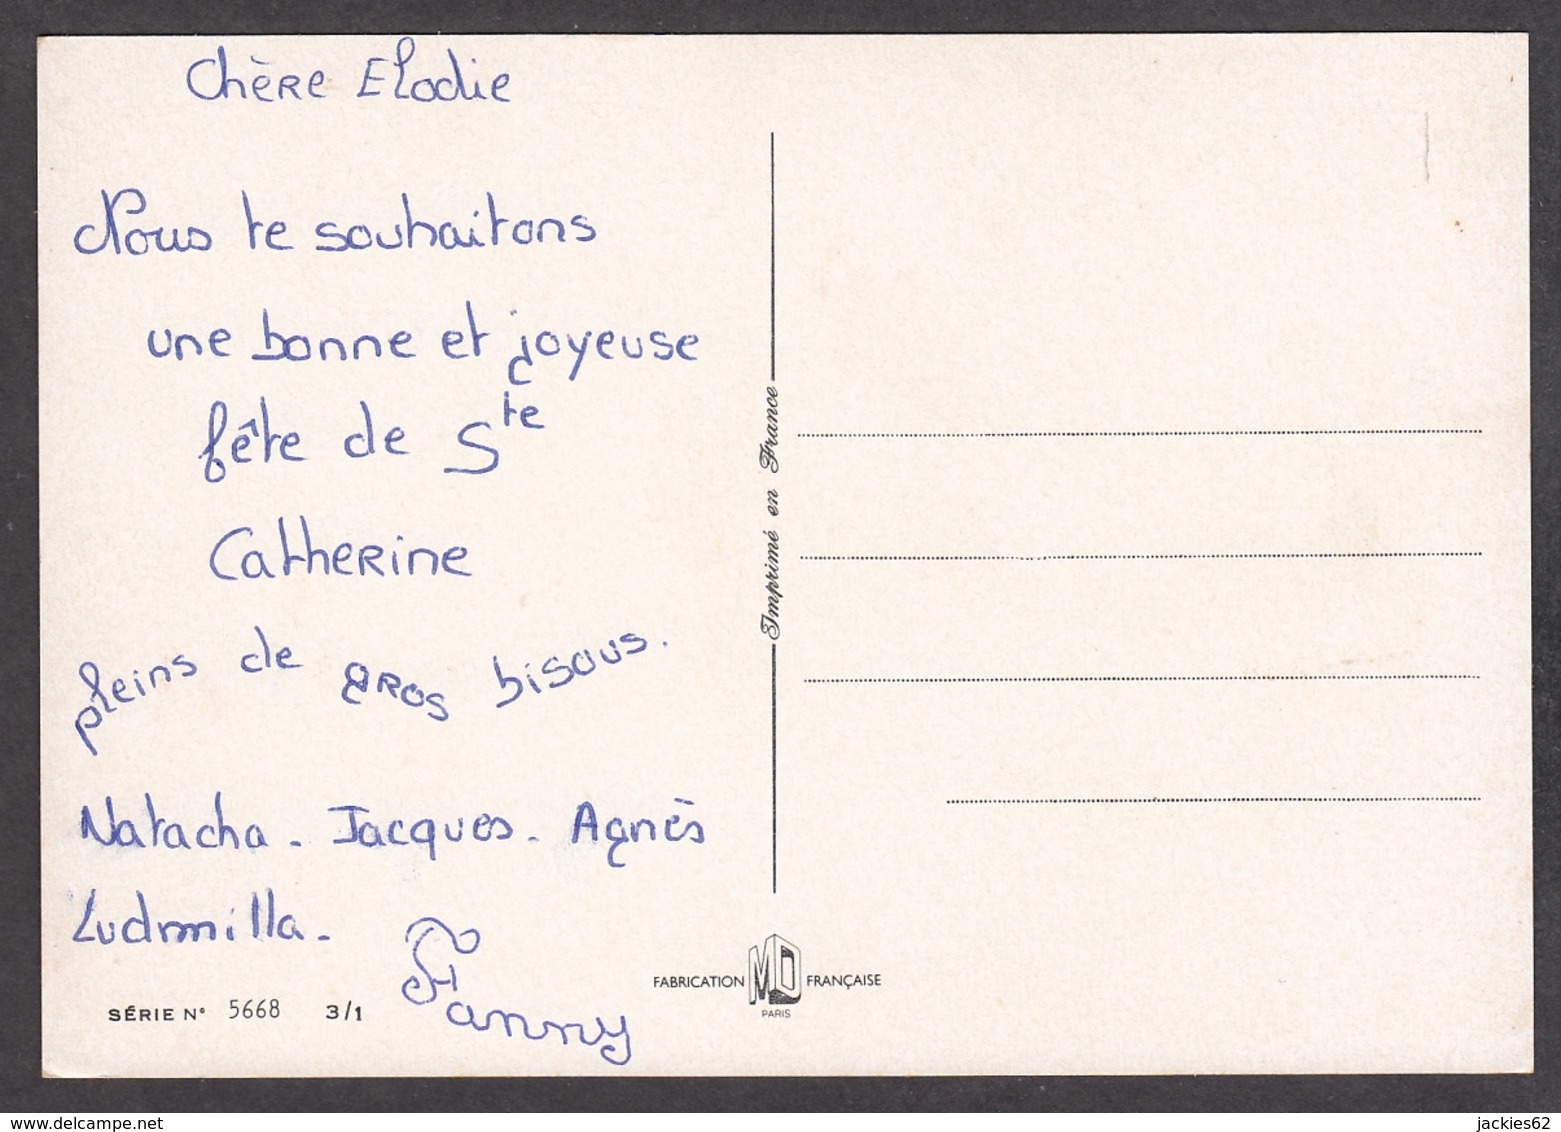 Chère Elodie
Nous te souhaitons
une bonne et joyeuse
fête de Ste
Catherine
pleins de gros bisous.
Natacha - Jacques - Agnès
Ludmilla -
Fanny
SÉRIE N° 5668 3/1
Imprimé en France
FABRICATION MD FRANÇAISE
PARIS
jackies62